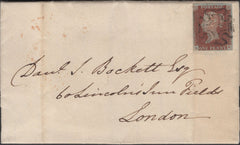 Danl. S. Bockett Esq
60 Lincoln's Inn Fields
London